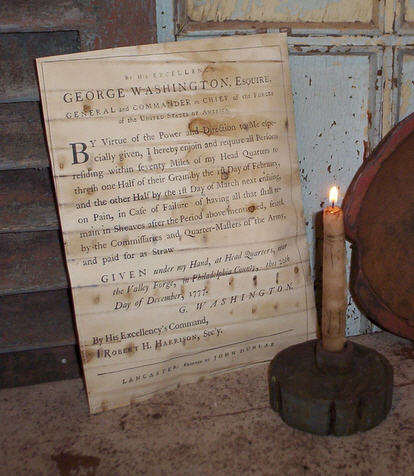 By His EXCELLENCY
GEORGE WASHINGTON, ESQUIRE,
GENERAL and COMMANDER in CHIEF of the FORCES
of the UNITED STATES of AMERICA.
BY Virtue of the Power and Direction to Me espe-
cially given, I hereby enjoin and require all Persons
residing within seventy Miles of my Head Quarters to
thresh one Half of their Grain by the 1st Day of February,
and the other Half by the 1st Day of March next ensuing,
on Pain, in Case of Failure of having all that shall re-
main in Sheaves after the Period above mentioned, seized
by the Commissaries and Quarter-Masters of the Army,
and paid for as Straw
GIVEN under my Hand, at Head Quarters, near
the Valley Forge, in Philadelphia County, this 20th
Day of December, 1777.
G. WASHINGTON.
By His Excellency's Command,
ROBERT H. HARRISON, Sec'y.
LANCASTER: PRINTED BY JOHN DUNLAP